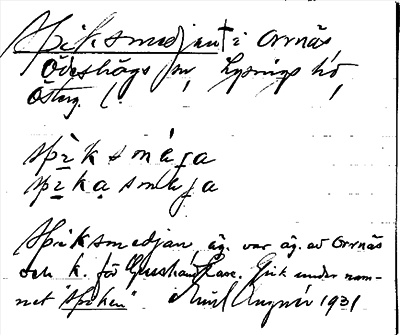 Spiksmedjan † i Orrnäs,
Ödeshögs sn, Lysings hd,
Östg.
spìksmǽja
spìkasmǽja
Spiksmedjan äg. var äg. av Orrnäs
och k. för Gushand. Gick under nam-
net "Spiken" 1931